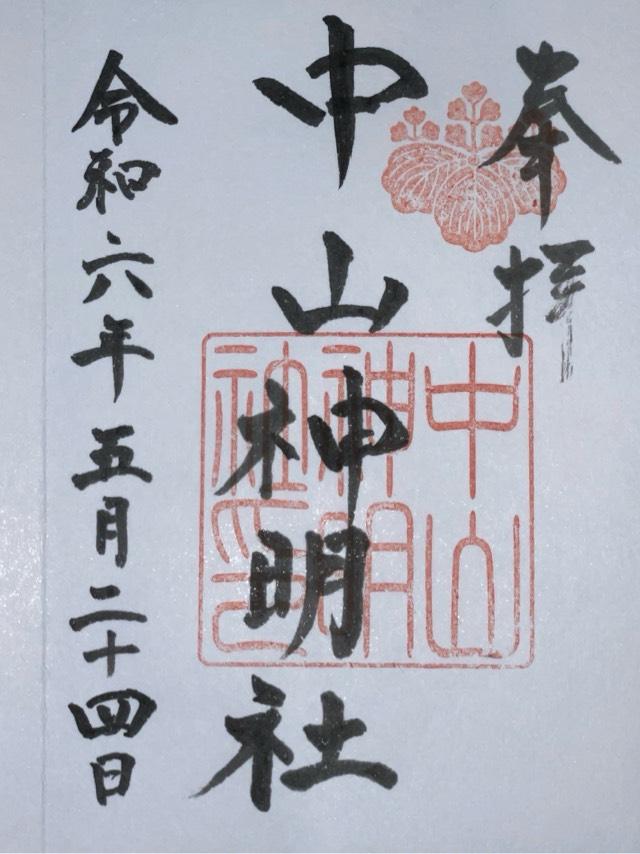 奉拝
中山神明社
中山
神明
社印
令和六年五月二十四日